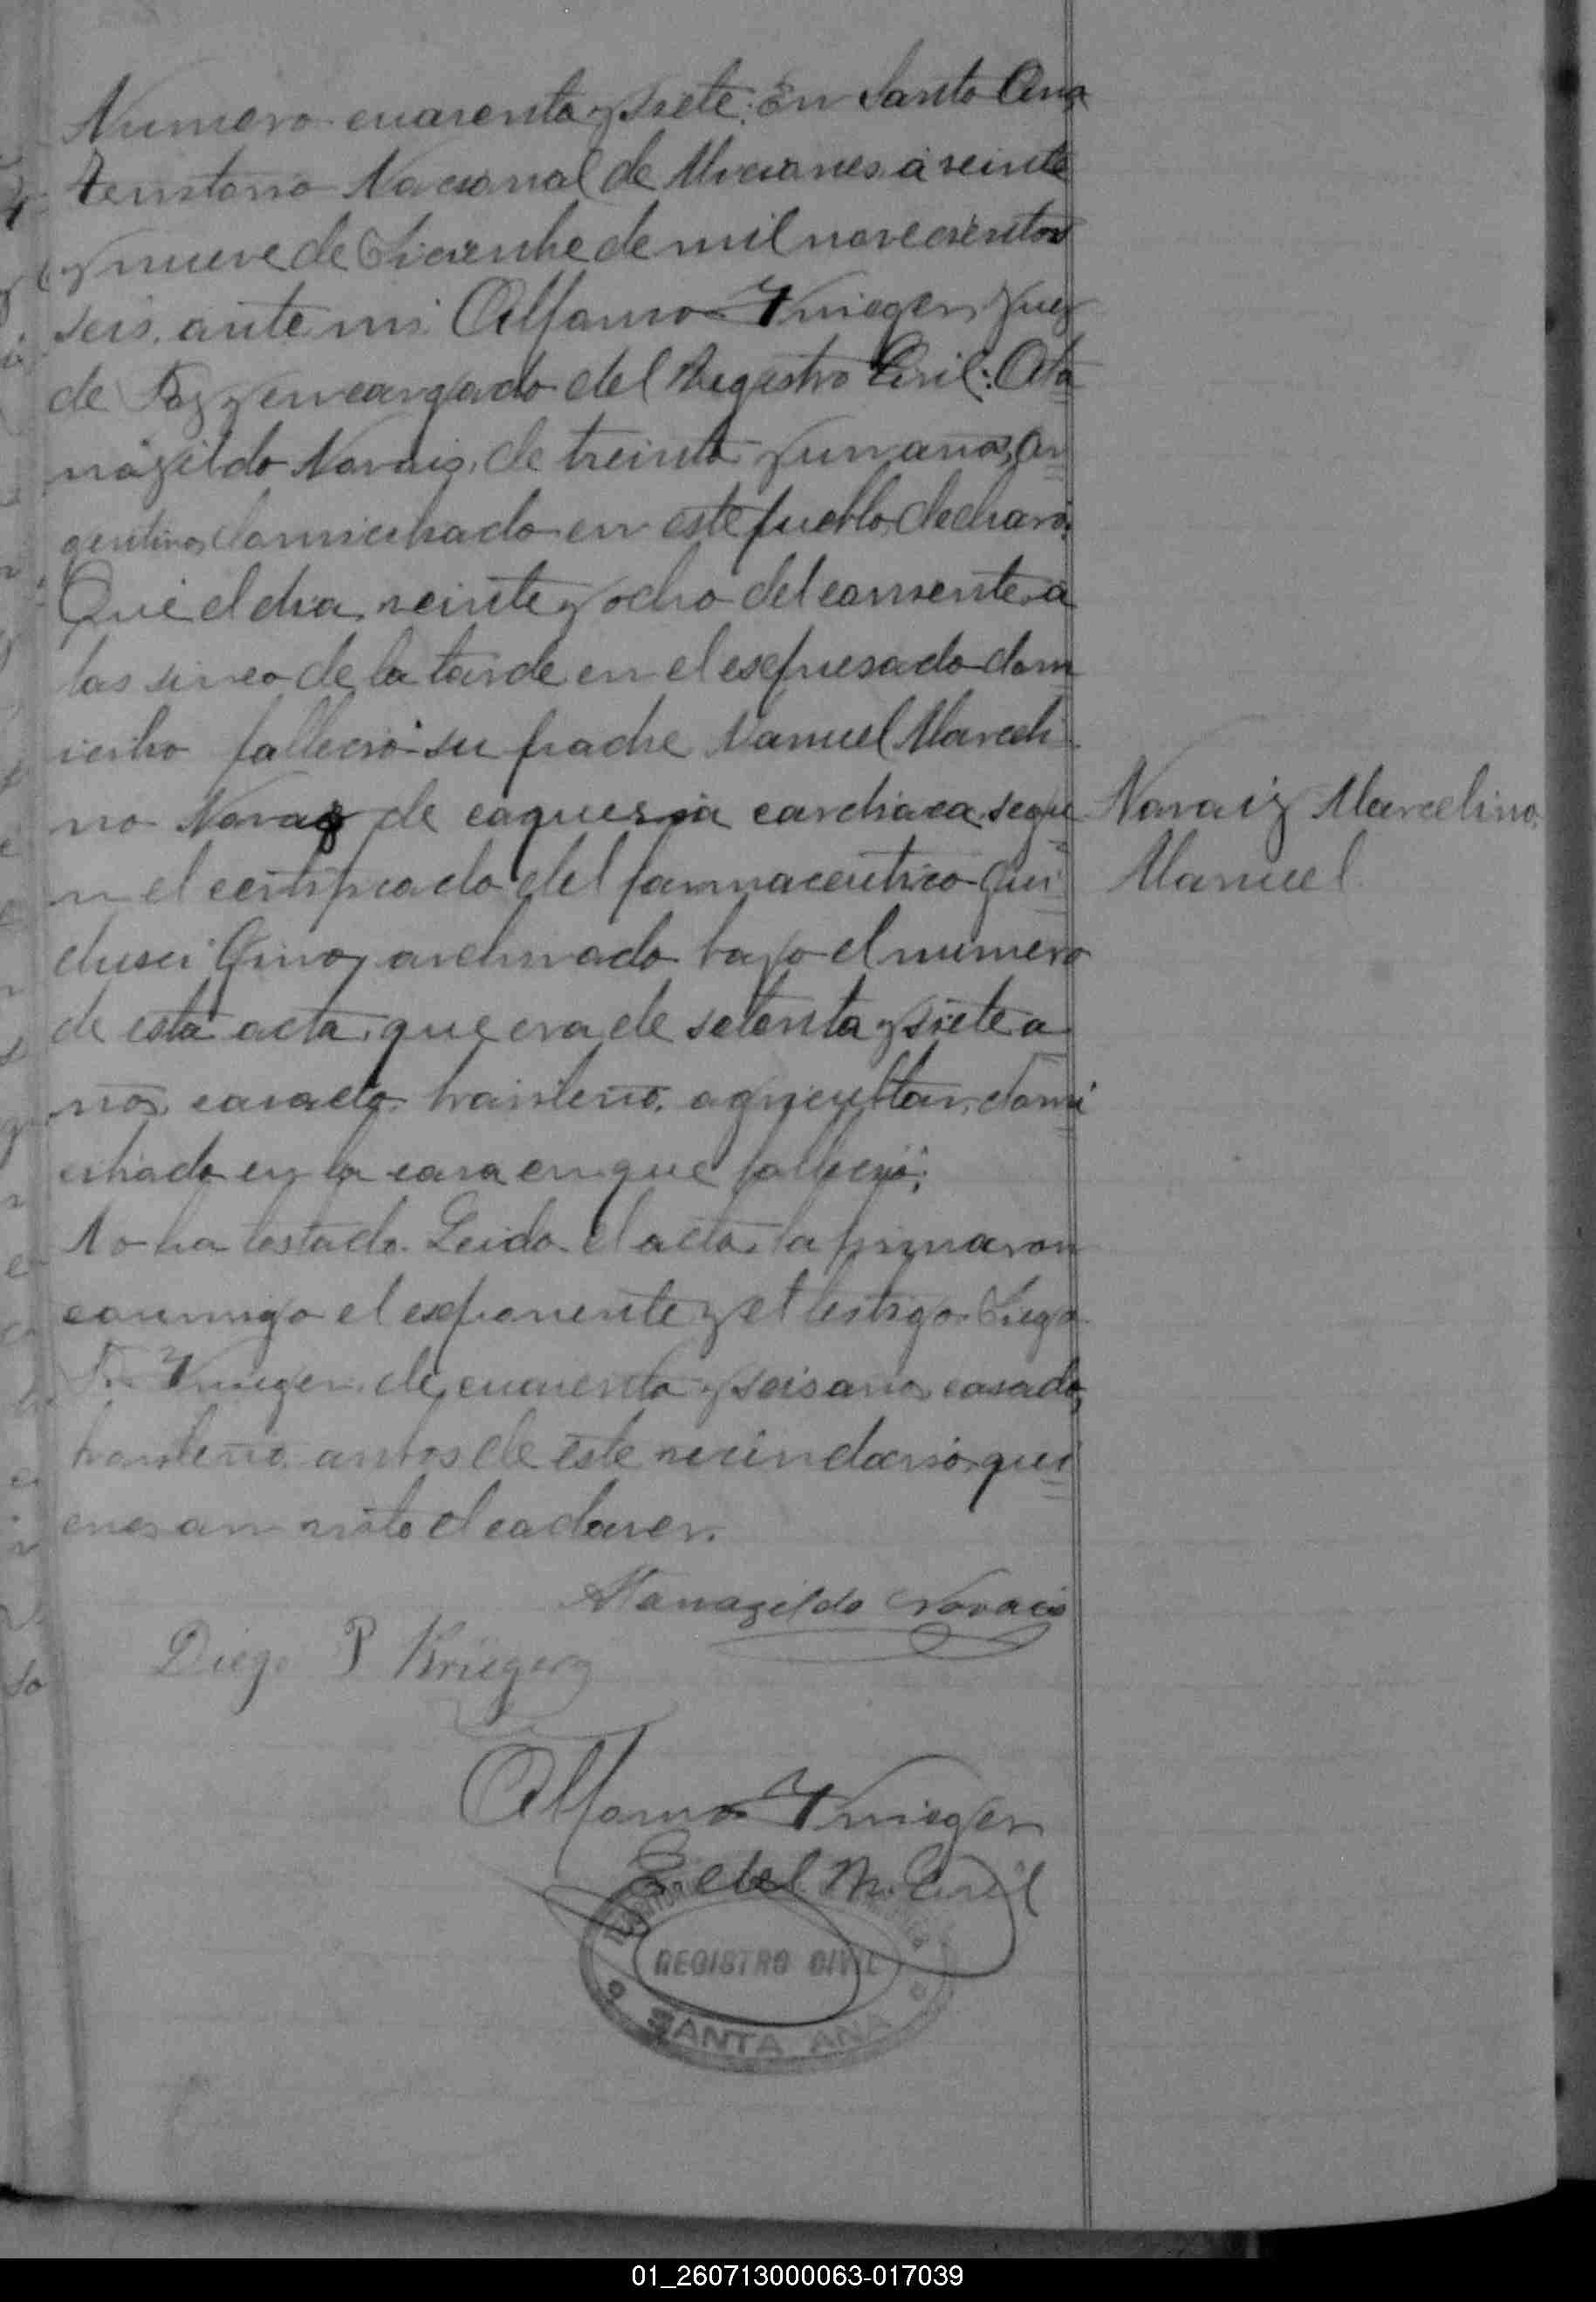 Numero cuarenta y siete: En Santa Ana
territorio Nacional de Misiones á veinte
y nueve de Diciembre de mil novecientos
seis, ante mi Alfonso Krieger, Juez
de Paz y encargado del Registro Civil: Ata
nagildo Novais, de treinta y un años, Ar
gentino, domiciliado en este pueblo, declaró:
Que el dia veinte y ocho del corriente a
las sinco de la tarde en el esepresado dom
icilio fallecio su padre Manuel Marceli
no Novaiz de caquesia cardiaca, segu
n el certificado del farmaceutico Gui
Gino, archivado bajo el numero
de esta acta, que era de setenta y siete a
ños, casado, brasilero, agricultor, domi
ciliado en la casa en que fallecio;
No ha testado. Leida el acta, la firmaron
conmigo el eseponente y el testigo Diego
P. Krieger, de cuarenta y seis años, casado,
brasilero, anbos de este vecindario, qui
enes an visto el cadaver.
Novaiz Marcelino
Manuel
Atanagildo Novais
Diego P Krieger
Alfonso Krieger
E. del R. Civil
REGISTRO CIVIL
SANTA ANA
01_260713000063-017039